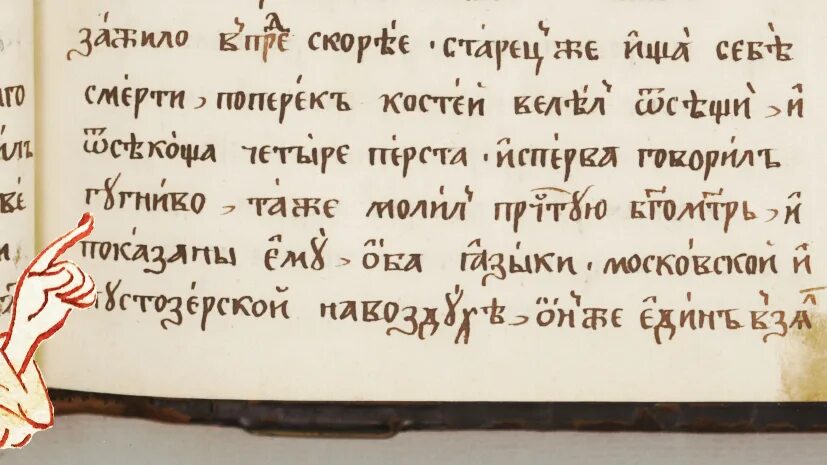 аго
зажило впрѣⷣ скорѣе · старецъ же и҆ща себѣ
смерти, поперекъ костей велѣл ѿсѣщи, и҆
илъ
ѿсѣкоша четыре перста · и҆сперва говорилъ
ве
гугниво, таже молил пречⷭ҇тую бг҃омт҃рь, и҆
и
показаны є҆му, ѻ҆ба ꙗ҆зыки · московской и҆
пустозерской навоздухѣ, ѻ҆н же є҆динъ взѧⷡ҇